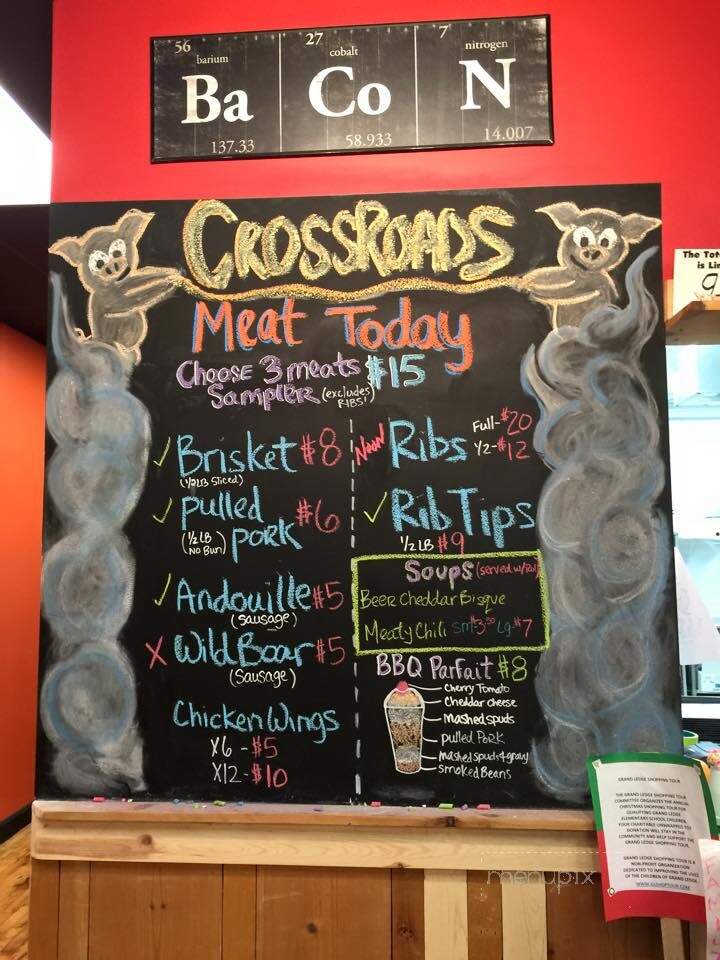 56 27 7
barium cobalt nitrogen
Ba Co N
137.33 58.933 14.007
CROSSROADS
Meat Today
Choose 3 meats $15
Sampler (excludes RIBS!)
Brisket $8
(1/2LB Sliced)
pulled pork $6
(1/2 LB No Bun)
Andouille $5
(sausage)
X Wild Boar $5
(Sausage)
Chicken Wings
X6 - $5
X12 - $10
Noon Ribs
Full - $20
1/2 - $12
Rib Tips
1/2 LB $9
Soups (served w/
Beer Cheddar Bisque
Meaty Chili sm $3.50 Lg $7
BBQ Parfait $8
Cherry Tomato
Cheddar cheese
Mashed spuds
pulled Pork
mashed spuds & gravy
smoked Beans
The Tot
is Li
9
GRAND LEDGE SHOPPING TOUR
THE GRAND LEDGE SHOPPING TOUR
COMMITTEE ORGANIZES THE ANNUAL
CHRISTMAS SHOPPING TOUR FOR
QUALIFYING GRAND LEDGE
ELEMENTARY SCHOOL CHILDREN.
YOUR CHARITABLE UNWRAPPED TOY
DONATION WILL STAY IN THE
COMMUNITY AND HELP SUPPORT THE
GRAND LEDGE SHOPPING TOUR.
GRAND LEDGE SHOPPING TOUR IS A
NON-PROFIT ORGANIZATION
DEDICATED TO IMPROVING THE LIVES
OF THE CHILDREN OF GRAND LEDGE.
menupix